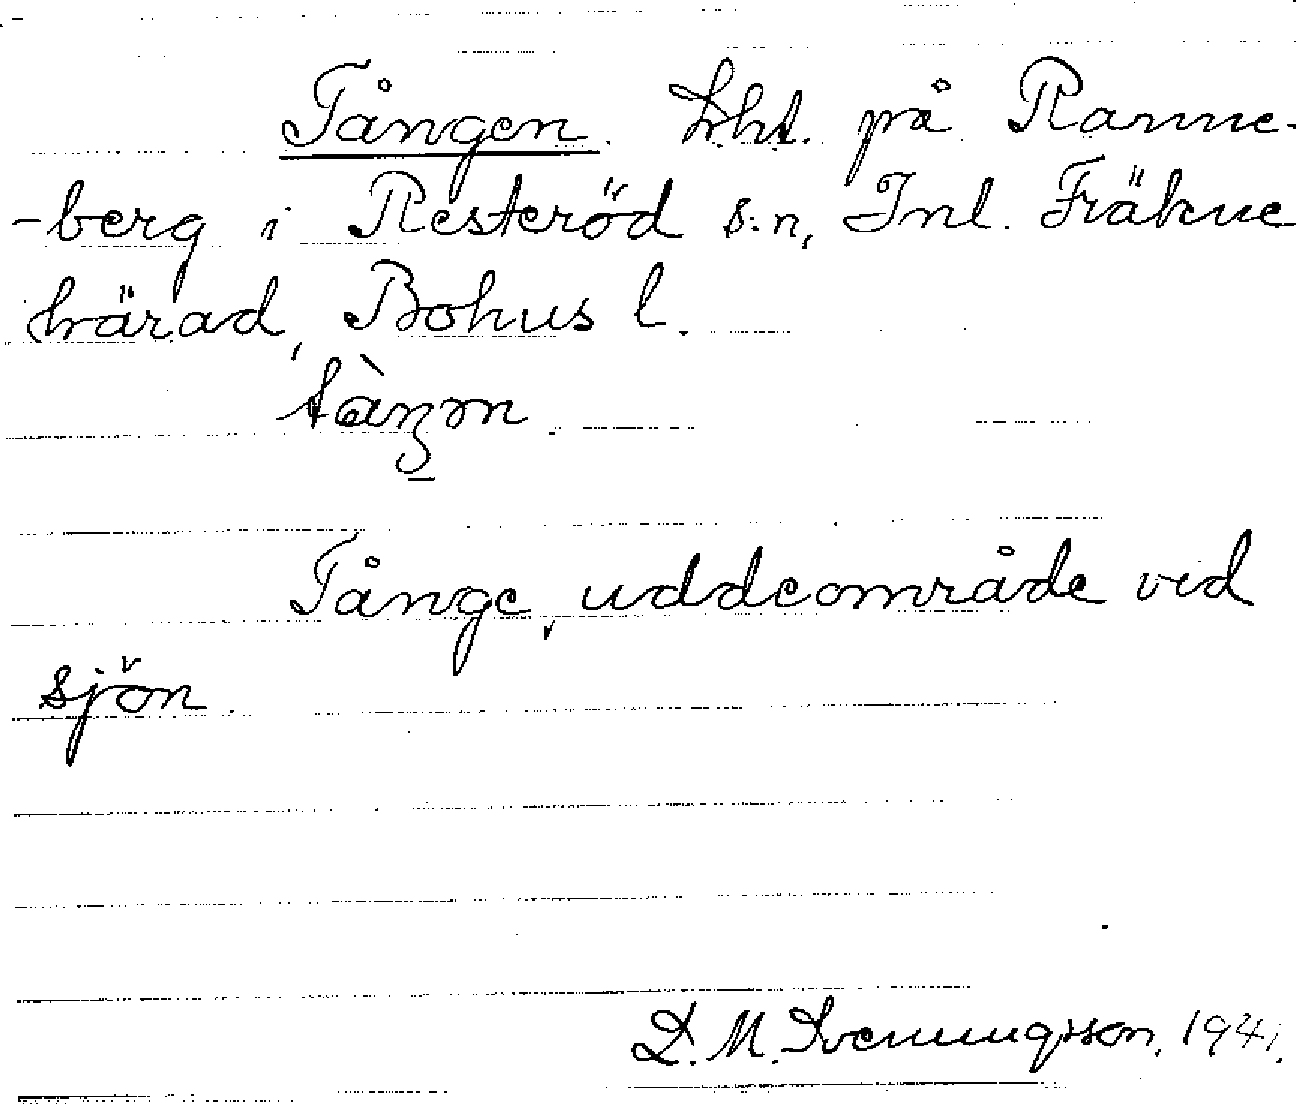 Tången. Lht. på Ranne-
-berg i Resteröd s:n, Inl. Fräkne
härad, Bohus l.
Tånge, uddeområde vid
sjön.
D. M. Svenningsson, 1941.